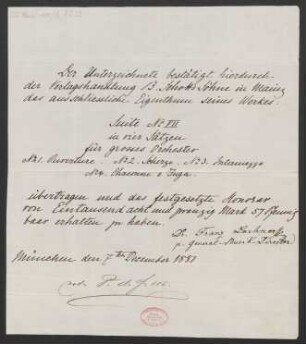 Der Unterzeichnete bestätigt hierdurch
der Verlagshandlung B. Schott's Söhne in Mainz
das ausschliessliche Eigenthum seines Werkes
Suite No VII
in vier Sätzen
für grosses Orchester
No 1. Ouverture - No 2. Scherzo - No 3. Intermezzo
No 4. Chaconne e Fuga.
übertragen und das festgesetzte Honorar
von Eintausend acht und zwanzig Mark 57 Pfennig
baar erhalten zu haben.
Dr. Franz Lachner
p. General-Musik Director
München den 7ten December 1881